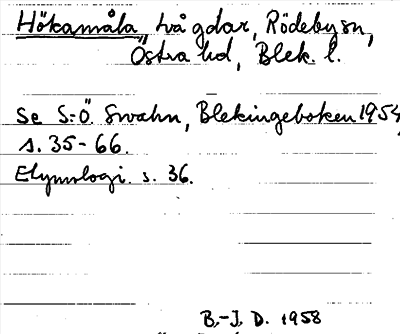 Hökamåla, två gdar, Rödeby sn,
Östra hd, Blek. l.
Se S-Ö. Swahn, Blekingeboken 1954,
s. 35-66.
Etymologi s. 36.
B.-J. D. 1958